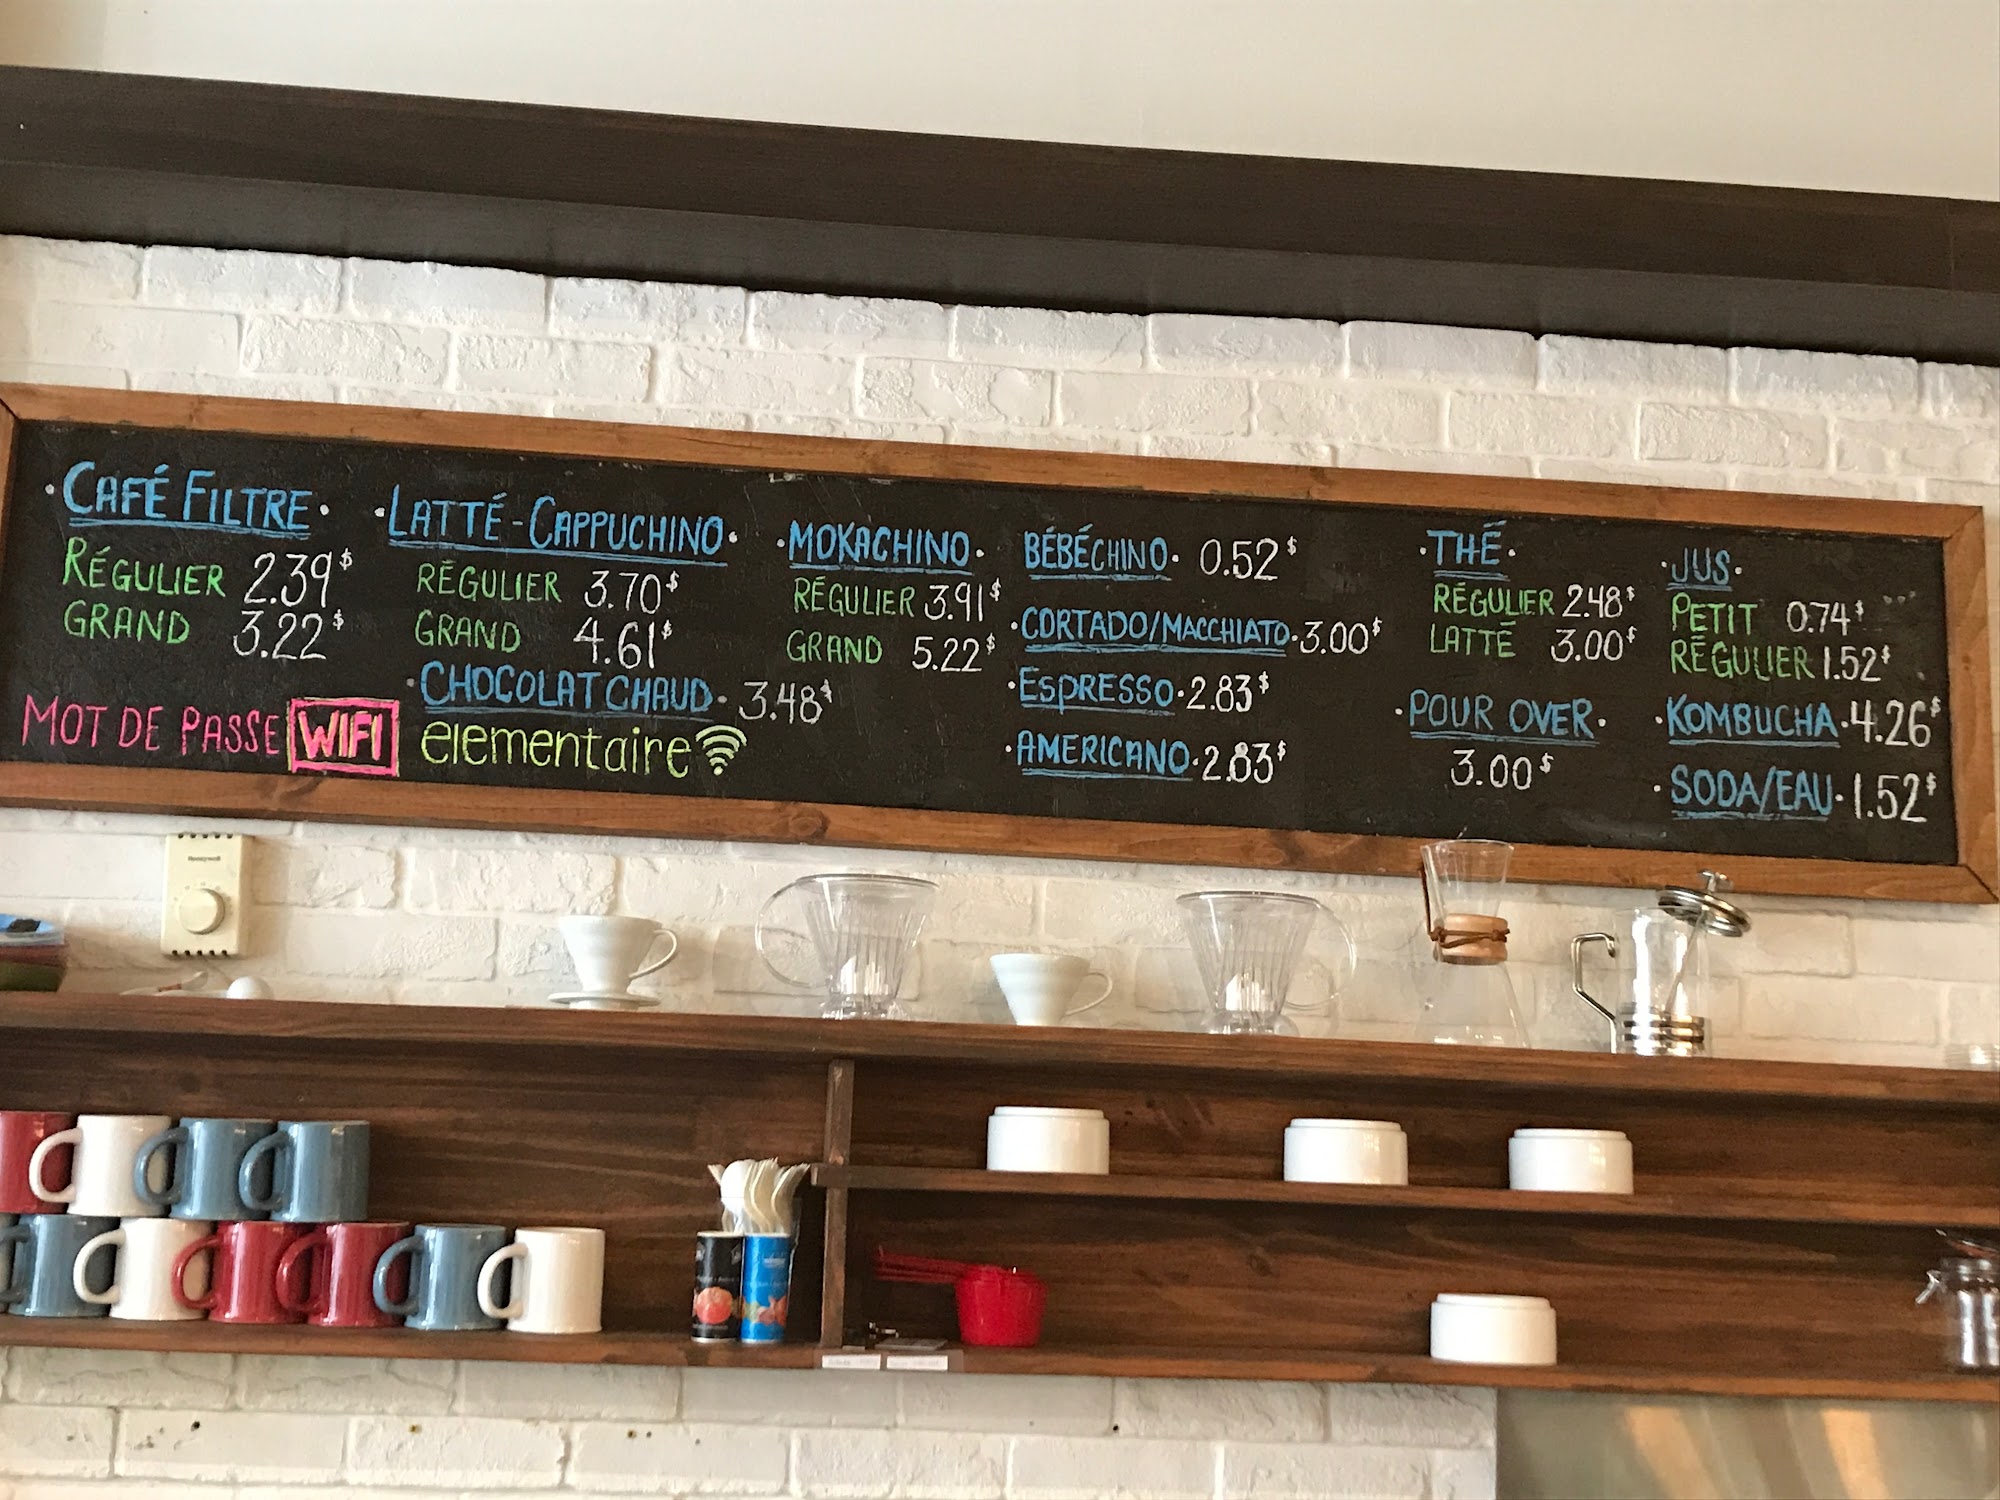 CAFÉ FILTRE
RÉGULIER 2.39$
GRAND 3.22$
MOT DE PASSE WIFI elementaire
LATTÉ-CAPPUCHINO
RÉGULIER 3.70$
GRAND 4.61$
CHOCOLAT CHAUD 3.48$
MOKACHINO
RÉGULIER 3.91$
GRAND 5.22$
BÉBÉCHINO 0.52$
CORTADO/MACCHIATO 3.00$
ESPRESSO 2.83$
AMERICANO 2.83$
THÉ
RÉGULIER 2.48$
LATTÉ 3.00$
POUR OVER
3.00$
JUS
PETIT 0.74$
RÉGULIER 1.52$
KOMBUCHA 4.26$
SODA/EAU 1.52$
Honeywell